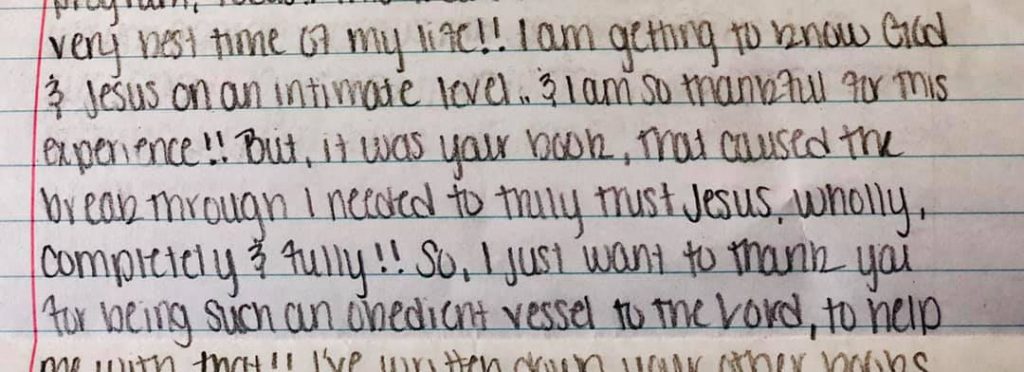 very best time of my life!! I am getting to know God
& Jesus on an intimate level.. & I am so thankfull for this
experience!! But, it was your book, that caused the
breakthrough I needed to truly trust Jesus, wholly,
completely & fully!! So, I just want to thank you
for being such an obedient vessel to the Lord, to help
me with that!! I've written down your other books